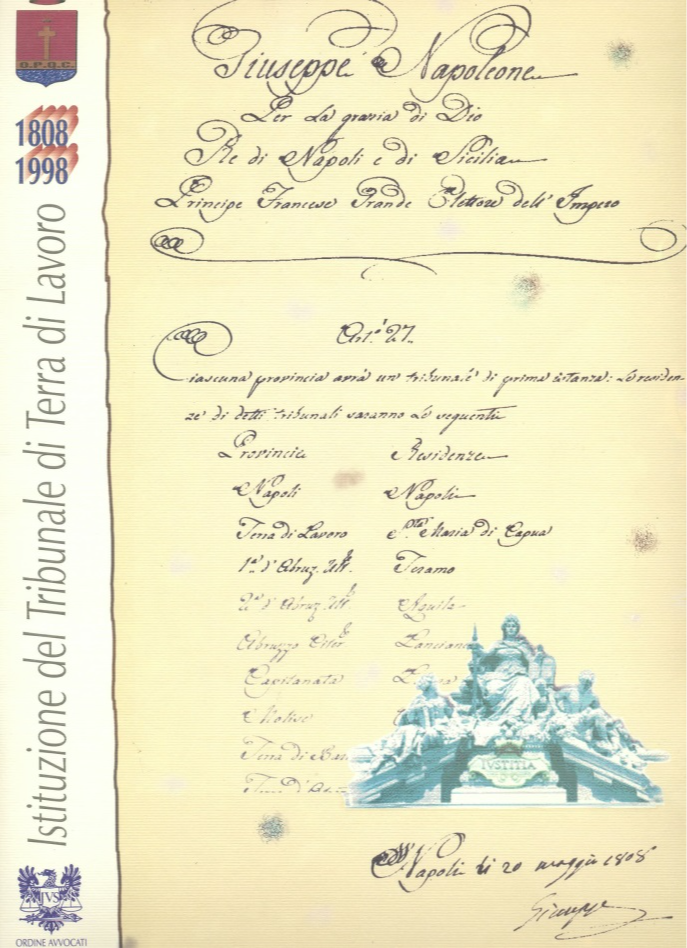 O.P.Q.C.
1808
1998
Istituzione del Tribunale di Terra di Lavoro
IVS
ORDINE AVVOCATI
Giuseppe Napoleone
Per la grazia di Dio
Re di Napoli e di Sicilia
Principe Francese Grande Elettore dell' Impero
Art.º 27.
Ciascuna provincia avrà un tribunale di prima istanza: Le residen-
ze di detti tribunali saranno le seguenti
Provincie Residenze
Napoli Napoli
Terra di Lavoro S.ta Maria di Capua
1.ª d'Abruz. Ult.e Teramo
2.ª d'Abruz. Ult.e Aquila
Abruzzo Citer.e Lanciano
Capitanata
Molise
Terra di
IVSTITIA
Napoli li 20 maggio 1808
Giuseppe